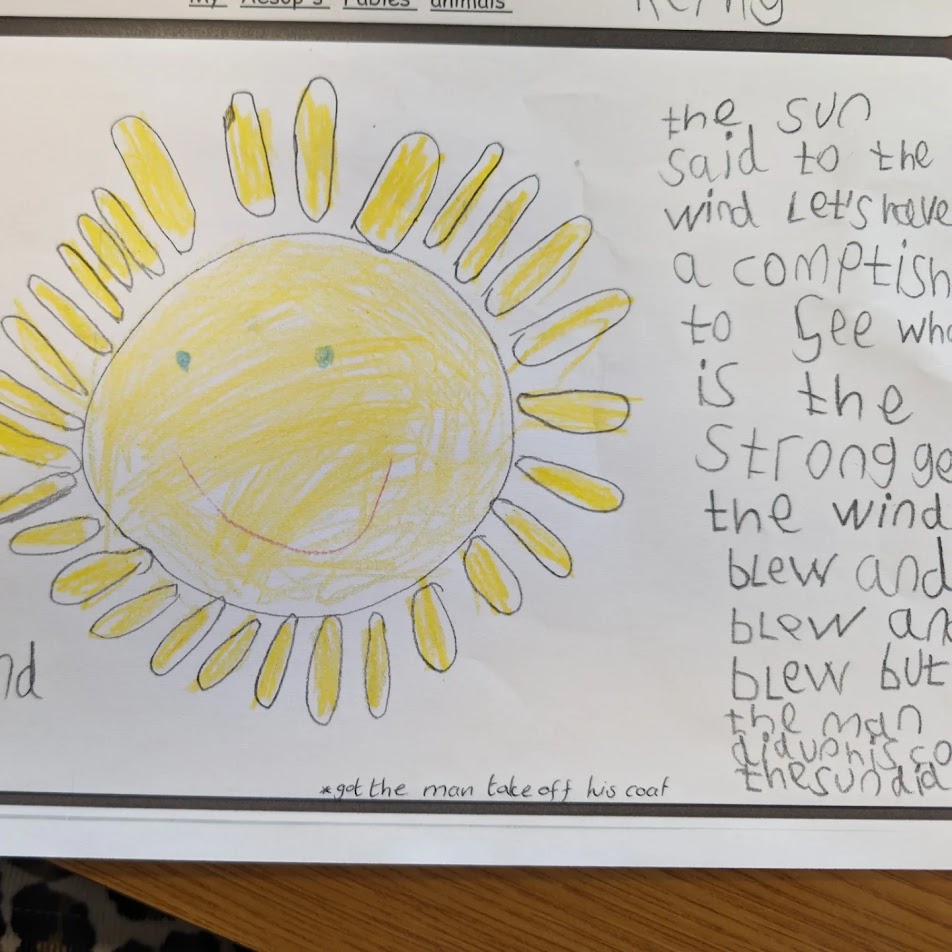 My Aesop's Fables animals
the sun
said to the
wind Let's have
a comptish
to See who
is the
Strongge
the wind
blew and
blew an
blew but
the man
did up his co
the sun did
nd
*got the man take off his coat